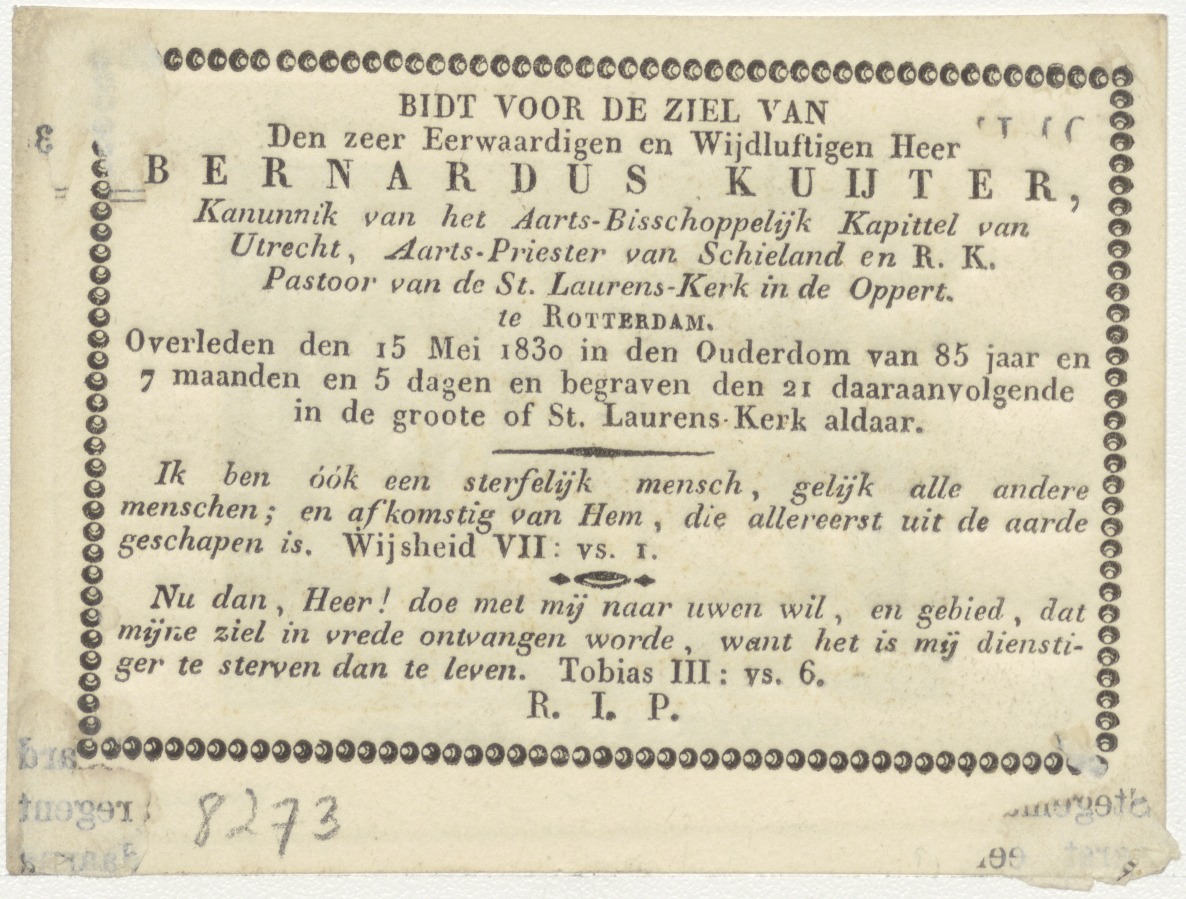 BIDT VOOR DE ZIEL VAN
Den zeer Eerwaardigen en Wijdluftigen Heer
BERNARDUS KUIJTER,
Kanunnik van het Aarts-Bisschoppelijk Kapittel van
Utrecht, Aarts-Priester van Schieland en R. K.
Pastoor van de St. Laurens-Kerk in de Oppert.
te ROTTERDAM.
Overleden den 15 Mei 1830 in den Ouderdom van 85 jaar en
7 maanden en 5 dagen en begraven den 21 daaraanvolgende
in de groote of St. Laurens-Kerk aldaar.
Ik ben óók een sterfelijk mensch, gelijk alle andere
menschen; en afkomstig van Hem, die allereerst uit de aarde
geschapen is. Wijsheid VII: vs. 1.
Nu dan, Heer! doe met mij naar uwen wil, en gebied, dat
mijne ziel in vrede ontvangen worde, want het is mij diensti-
ger te sterven dan te leven. Tobias III: vs. 6.
R. I. P.
8273